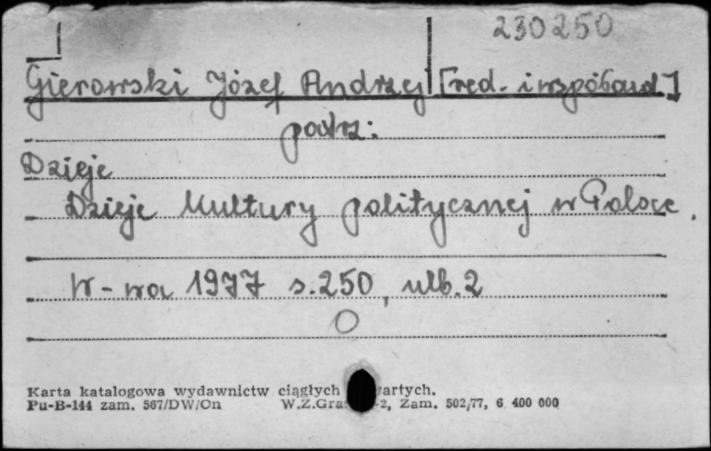 230250
Gierowski Józef Andrzej [red. i współaut]
patrz:
Dzieje
Dzieje kultury politycznej w Polsce.
W-wa 1977 s.250, nlb.2
Karta katalogowa wydawnictw ciągłych
Pu-B-144 zam. 567/DW/On W.Z.Gra -2, Zam. 502/77, 6 400 000